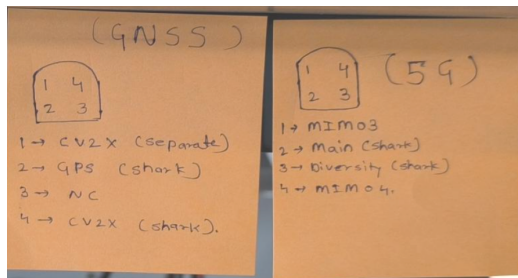 (GNSS)
1 4
2 3
1 → CV2X (separate)
2 → GPS (shark)
3 → NC
4 → CV2X (shark).
(5G)
1 4
2 3
1 → MIMO3
2 → Main (shark)
3 → Diversity (shark)
4 → MIMO4.